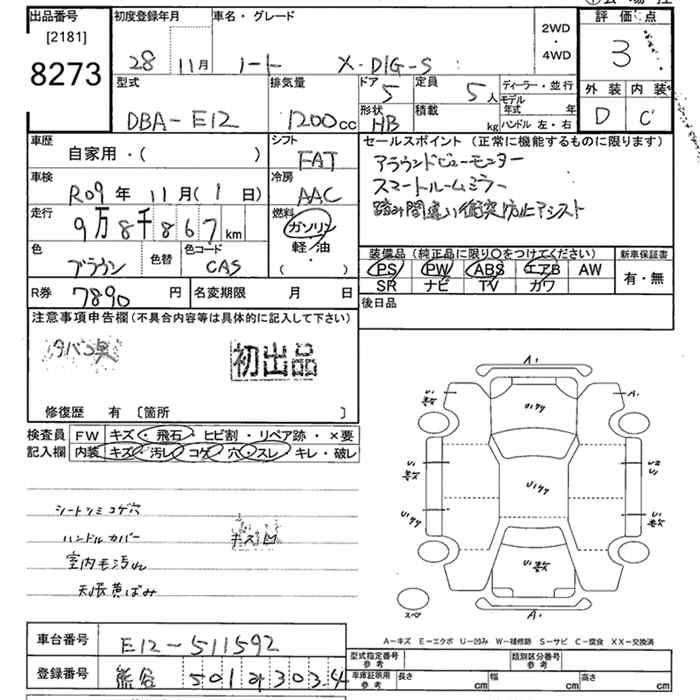 出品番号
[2181]
8273
初度登録年月
28 11月
車名・グレード
ノート X-DIG-S
2WD
・
4WD
評価点
3
外装 内装
D C
型式
DBA-E12
排気量
1200cc
ドア
5
定員
5人
形状
HB
積載
kg
ディーラー・並行
モデル年式 年
ハンドル 左・右
車歴
自家用・( )
シフト
FAT
車検
R09年 11月(1日)
冷房
AAC
走行
9万8千867km
燃料
ガソリン
軽・油
・( )
色
ブラウン
色替
色コード
CAS
R券 7890円
名変期限 月 日
セールスポイント(正常に機能するものに限ります)
アラウンドビューモニター
スマートルームミラー
踏み間違い衝突防止アシスト
装備品(純正品に限り○をつけてください)
PS PW ABS エアB AW
SR ナビ TV カワ
新車保証書
有・無
後日品
注意事項申告欄(不具合内容等は具体的に記入して下さい)
タバコ臭
初出品
修復歴 有 〔箇所 〕
検査員記入欄
FW キズ・飛石・ヒビ割・リペア跡・×要
内装 キズ・汚レ・コゲ・穴・スレ・キレ・破レ
シートシミコゲ穴
ハンドルカバー
キズ凹
室内毛汚れ
天張黄ばみ
A・
U1
多数
A・
Uリケケ
U1
多数
U2
U1
Uリケケ
Uリケケ
U1
多数
U1多数
スペア
A・
A-キズ E-エクボ U-凹み W-補修跡 S-サビ C-腐食 XX-交換済
車台番号 E12-511592
登録番号 熊谷 501 め 3034
型式指定番号
参考
類別区分番号
参考
車庫証明用
参考
長さ cm
幅 cm
高さ cm